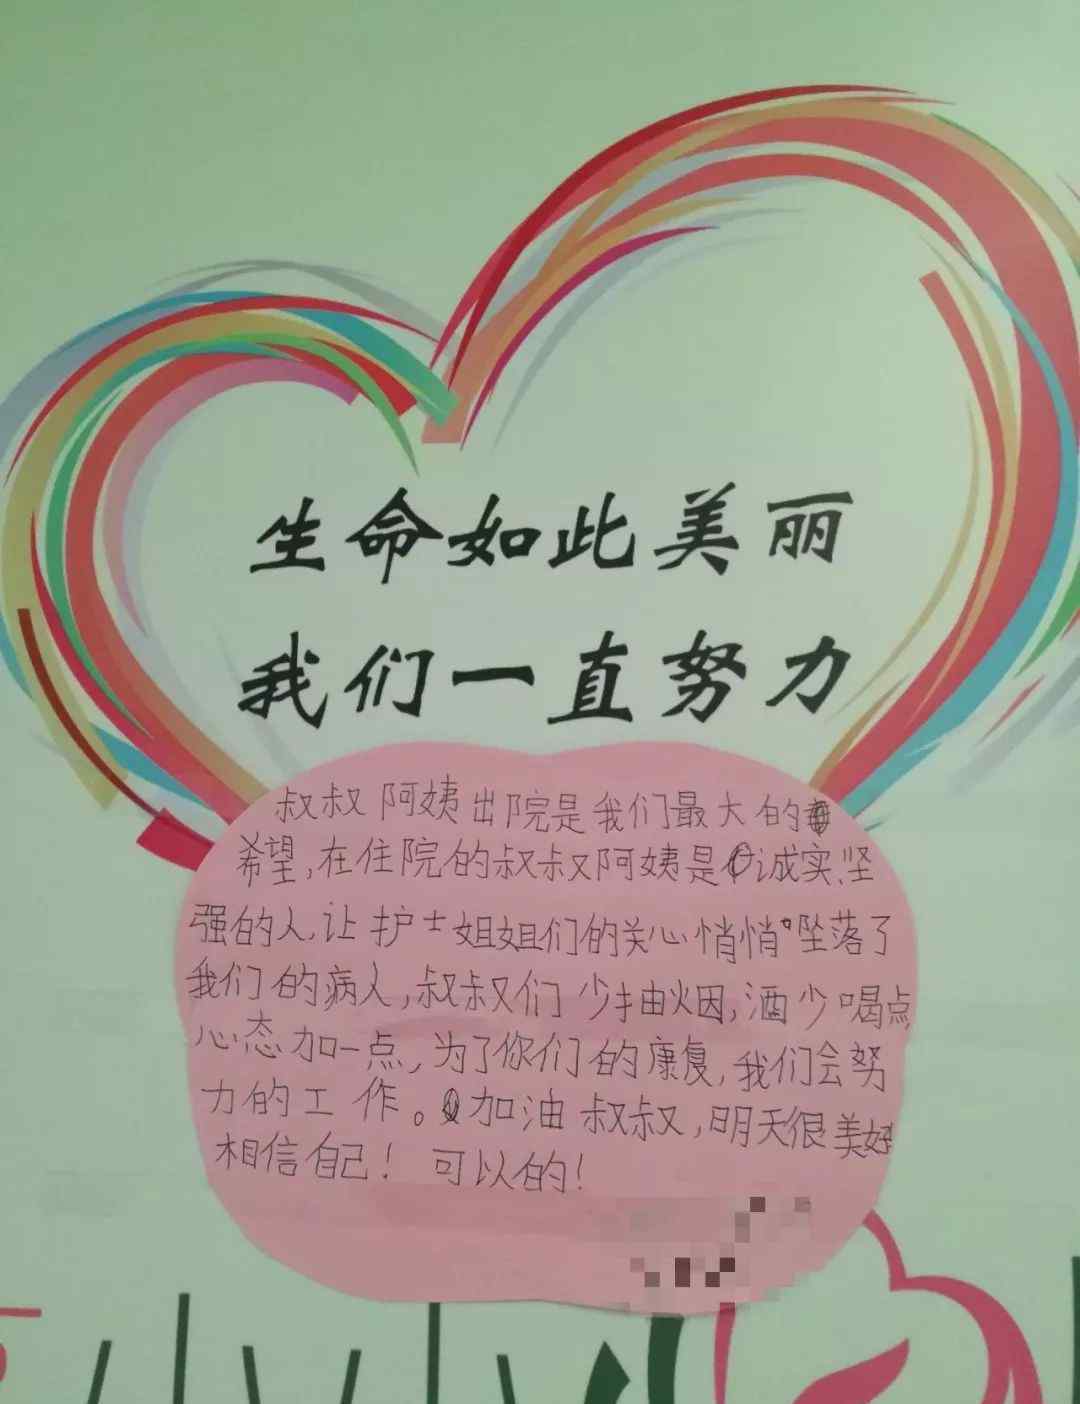 生命如此美丽
我们一直努力
叔叔阿姨出院是我们最大的
希望,在住院的叔叔阿姨是诚实、坚
强的人,让护士姐姐们的关心悄悄坠落了
我们的病人,叔叔们少抽烟,酒少喝点
心态加一点,为了你们的康复,我们会努
力的工作。加油叔叔,明天很美好
相信自己!可以的!